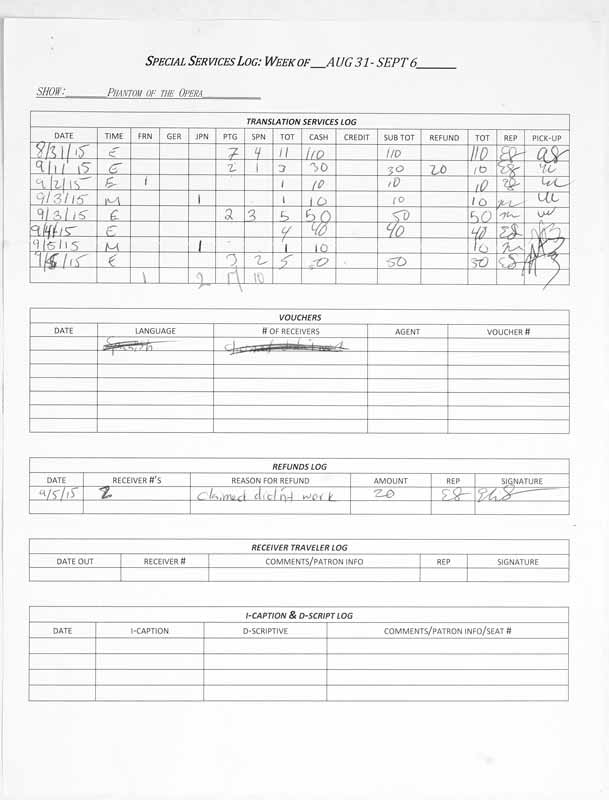 SPECIAL SERVICES LOG: WEEK OF AUG 31- SEPT 6
SHOW: PHANTOM OF THE OPERA
TRANSLATION SERVICES LOG
DATE TIME FRN GER JPN PTG SPN TOT CASH CREDIT SUB TOT REFUND TOT REP PICK-UP
8/31/15 E 7 4 11 110 110 110 EB
9/1/15 E 2 1 3 30 30 20 10 EB
9/2/15 E 1 1 10 10 10 EB
9/3/15 M 1 1 10 10 10
9/3/15 E 2 3 5 50 50 50
9/4/15 E 4 40 40 40 EB
9/5/15 M 1 1 10 10
9/5/15 E 3 2 5 50 50 50 EB
1 2 17 10
VOUCHERS
DATE LANGUAGE # OF RECEIVERS AGENT VOUCHER #
Spanish
REFUNDS LOG
DATE RECEIVER #'S REASON FOR REFUND AMOUNT REP SIGNATURE
9/5/15 2 Claimed didn't work 20 EB
RECEIVER TRAVELER LOG
DATE OUT RECEIVER # COMMENTS/PATRON INFO REP SIGNATURE
I-CAPTION & D-SCRIPT LOG
DATE I-CAPTION D-SCRIPTIVE COMMENTS/PATRON INFO/SEAT #